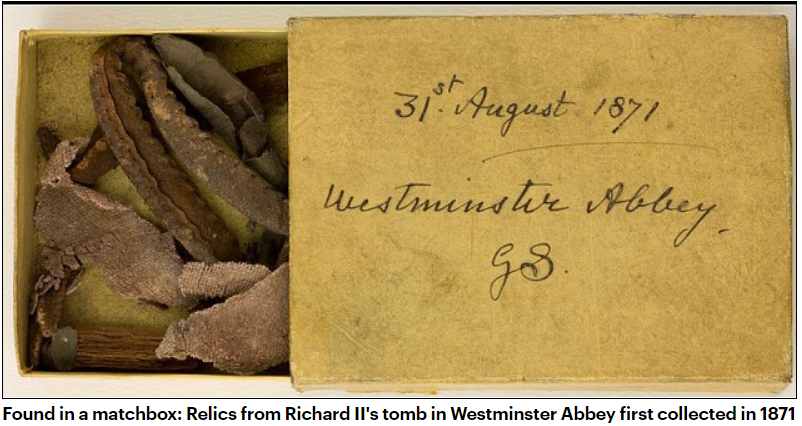 31st. August 1871
Westminster Abbey.
GS.
Found in a matchbox: Relics from Richard II's tomb in Westminster Abbey first collected in 1871